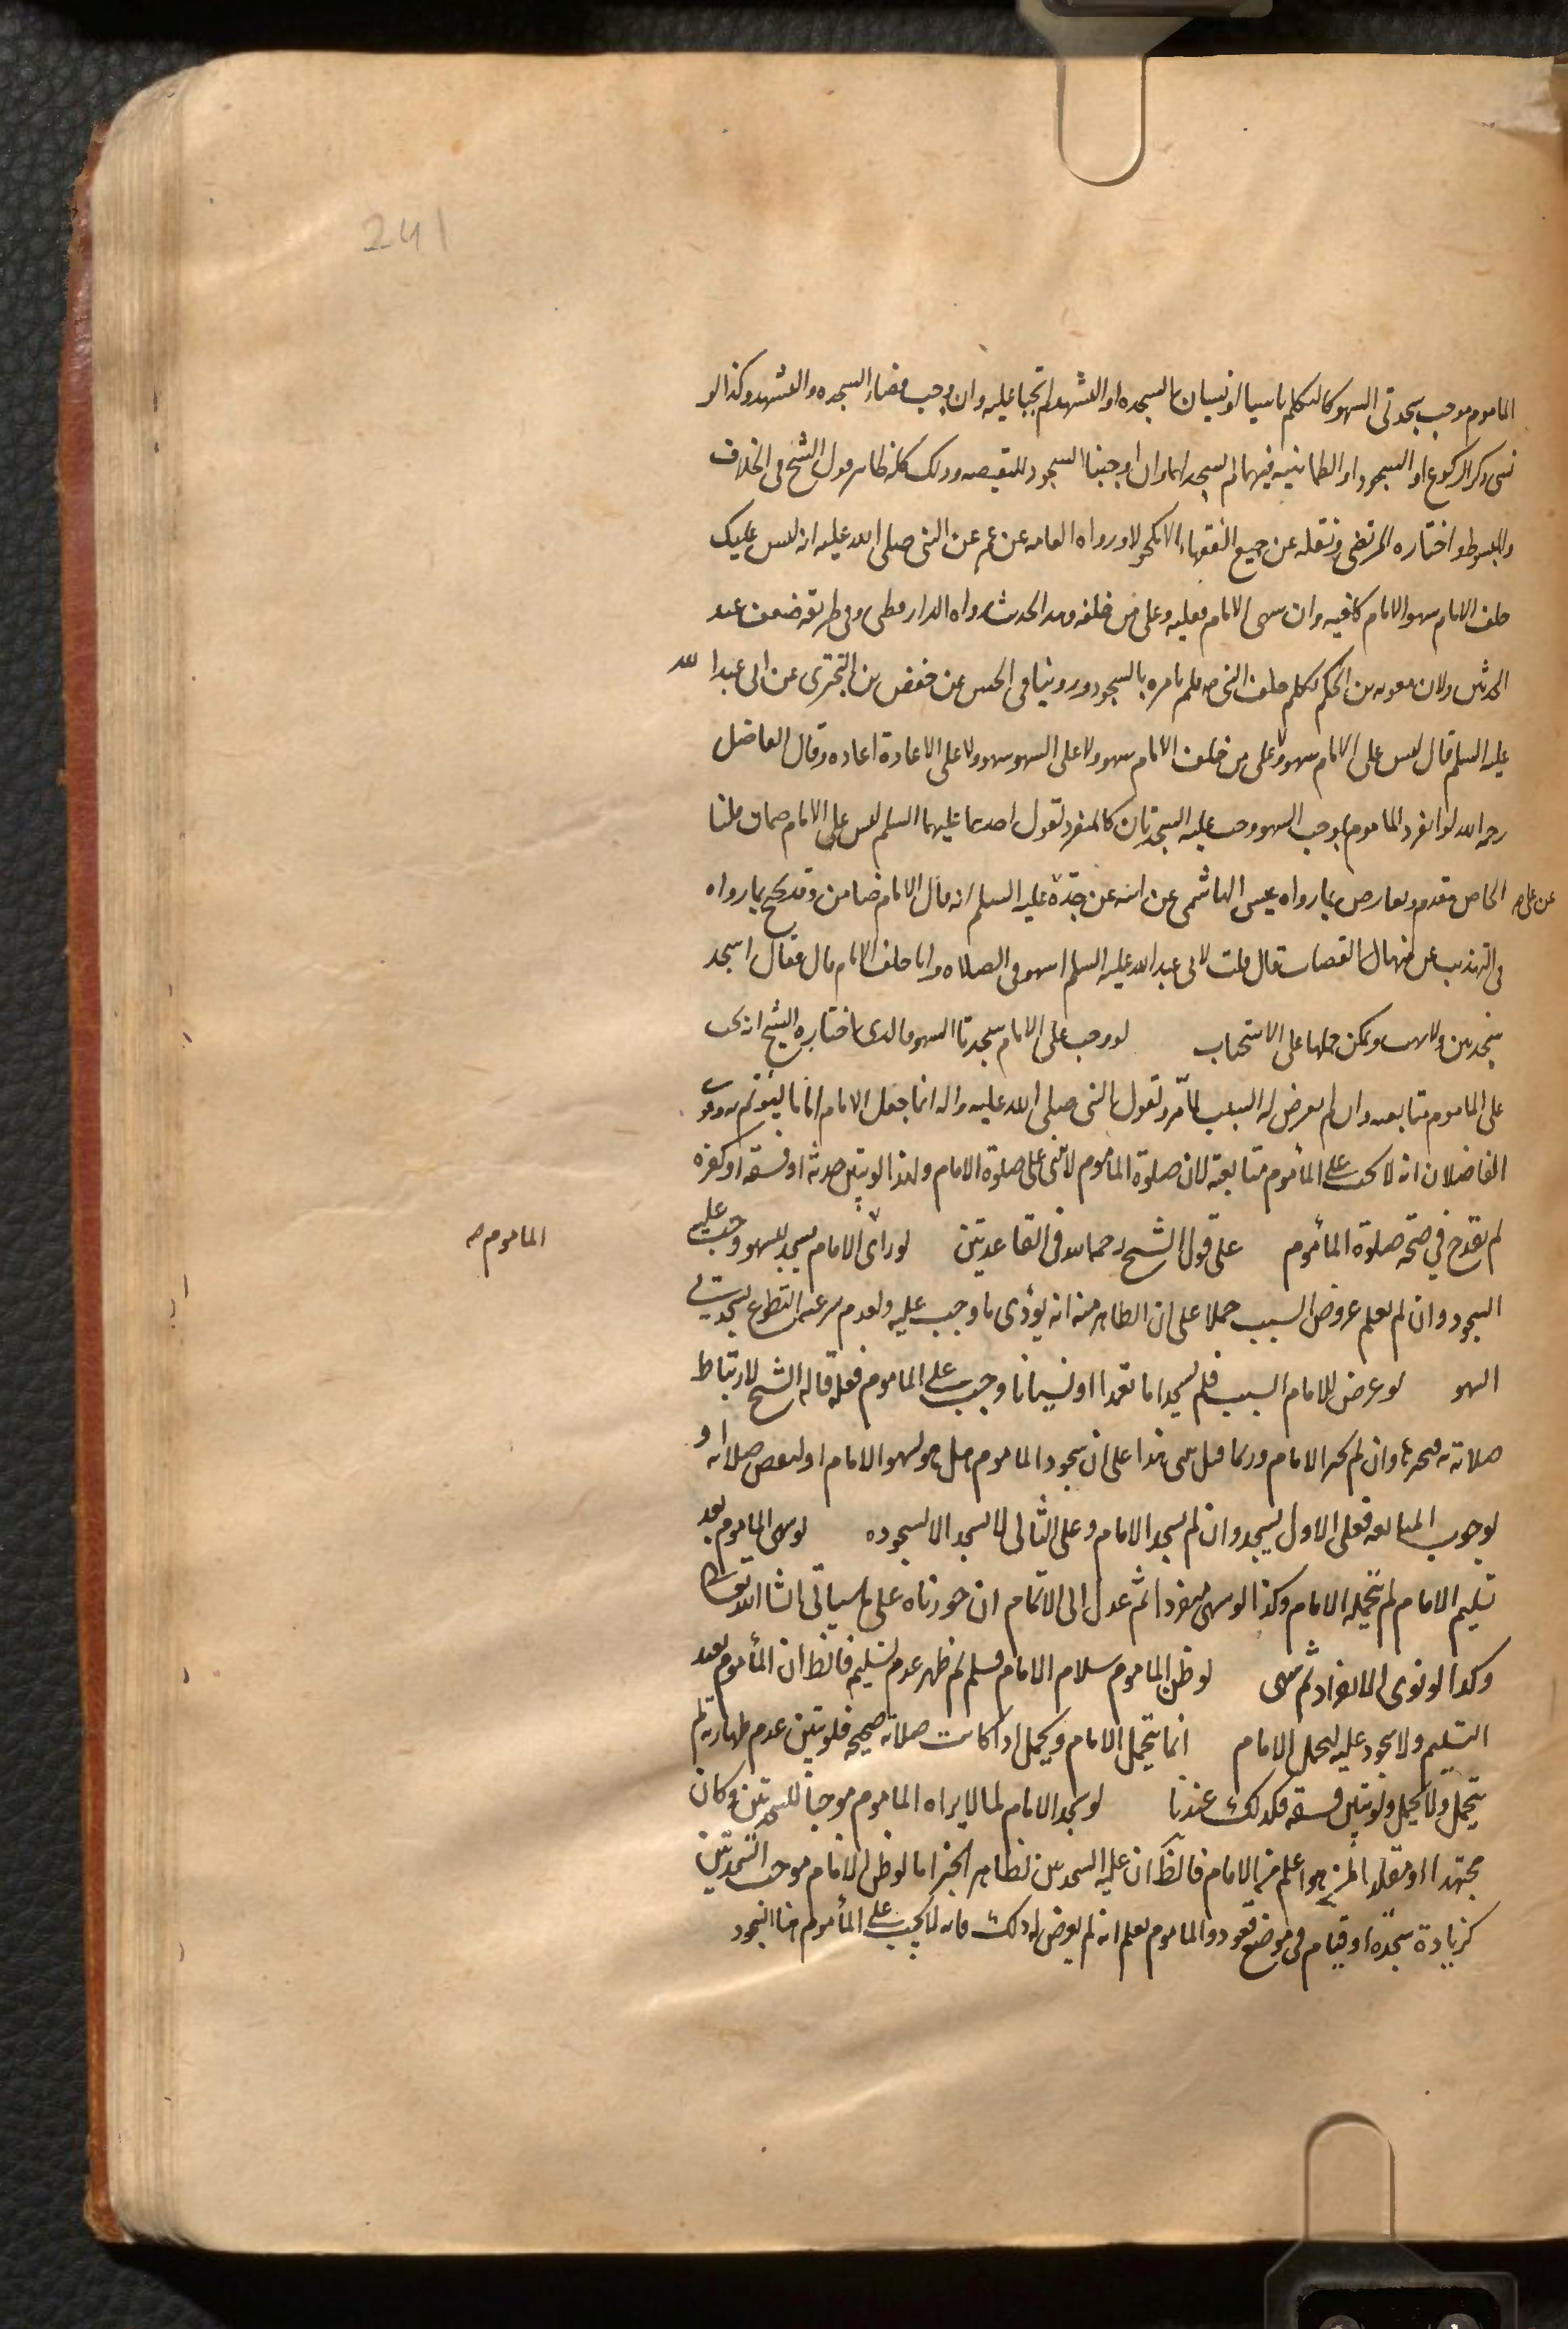 241
الماموم موجب سجدتي السهو كالتكلم ناسيا او نسيان السجده او التشهد لم تجبا عليه وان وجب قضاء السجده والتشهد وكذا لو
نسي ذكر الركوع او السجود او الطمانينه فيهما لم يسجد لهما وان اوجبنا السجود للنقيصه وذلك كله ظاهر قول الشيخ في الخلاف
والمبسوط واختاره المرتضى ونقله عن جميع الفقهاء الا مكحولا ورواه العامه عن عمر عن النبي صلى الله عليه انه ليس عليك
خلف الامام سهو الامام كافيه وان سهى الامام فعليه وعلى من خلفه وهذا الحديث رواه الدارقطني وفي طريقه ضعف عند
المحدثين ولان معويه بن الحكم تكلم خلف النبي صه فلم يامره بالسجود وروينا في الحسن عن حفص بن البختري عن ابي عبد الله
عليه السلم قال ليس على الامام سهو ولا على من خلف الامام سهو ولا على السهو سهو ولا على الاعادة اعاده وقال الفاضل
رحمه الله لو انفرد الماموم بموجب السهو وجب عليه السجدتان كالمنفرد لقول احدهما عليهما السلم ليس على الامام ضمان قلنا
الخاص مقدم ويعارض بما رواه عيسى الهاشمي عن ابيه عن جده عن علي صه عليه السلم انه قال الامام ضامن وقد يحتج بما رواه
في التهذيب عن منهال القصاب قال قلت لابي عبد الله عليه السلم اسهو في الصلاه وانا خلف الامام قال فقال اسجد
سجدتين ولا تهب ويمكن حملها على الاستحباب لو وجب على الامام سجدتا السهو فالذي اختاره الشيخ انه يجب
على الماموم متابعته وان لم يعرض له السبب لما مر ولقول النبي صلى الله عليه واله انما جعل الامام اماما ليؤتم به وقوى
الفاضلان انه لا يجب على المأموم متابعته لان صلوة المأموم لا تبنى على صلوة الامام ولهذا لو تبين حدثه او فسقه او كفره
لم يقدح في صحة صلوة المأموم على قول الشيخ رحمه الله في القاعدتين لو رأى الامام يسجد للسهو وجب عليه
الماموم صه
السجود وان لم يعلم عروض السبب حملا على ان الظاهر منه انه يؤدى ما وجب عليه ولعدم شرعيه التطوع بسجدتي
السهو لو عرض للامام السبب فلم يسجد اما تعمدا او نسيانا وجب على الماموم فعله قاله الشيخ لارتباط
صلاته به فيجبرها وان لم يجبر الامام وربما قيل يبنى هذا على ان سجود الماموم هل هو لسهو الامام او لنقص صلاته او
لوجوب المتابعه فعلى الاول يسجد وان لم يسجد الامام وعلى الثاني لا يسجد الا لسجوده لو سهى الماموم بعد
تسليم الامام لم يتحمله الامام وكذا لو سهى منفردا ثم عدل الى الائتمام ان جوزناه على ما سياتي انشا الله تعالى
وكذا لو نوى الانفراد ثم سهى لو ظن الماموم سلام الامام فسلم ثم ظهر عدم تسليمه فالظ ان المأموم يعيد
التسليم ولا سجود عليه لتحمل الامام انما يتحمل الامام ويحمل اذا كانت صلاته صحيحه فلو تبين عدم طهارته لم
يتحمل ولا يحمل ولو تبين فسقه فكذلك عندنا لو سجد الامام لما لا يراه الماموم موجبا للسجدتين وكان
مجتهدا او مقلدا لمن هو اعلم من الامام فالظ ان عليه السجدتين لظاهر الخبر اما لو ظن الامام موجب السجدتين
كزيادة سجدة او قيام في موضع قعود والماموم يعلم انه لم يعرض له ذلك فانه لا يجب على المأموم هنا السجود